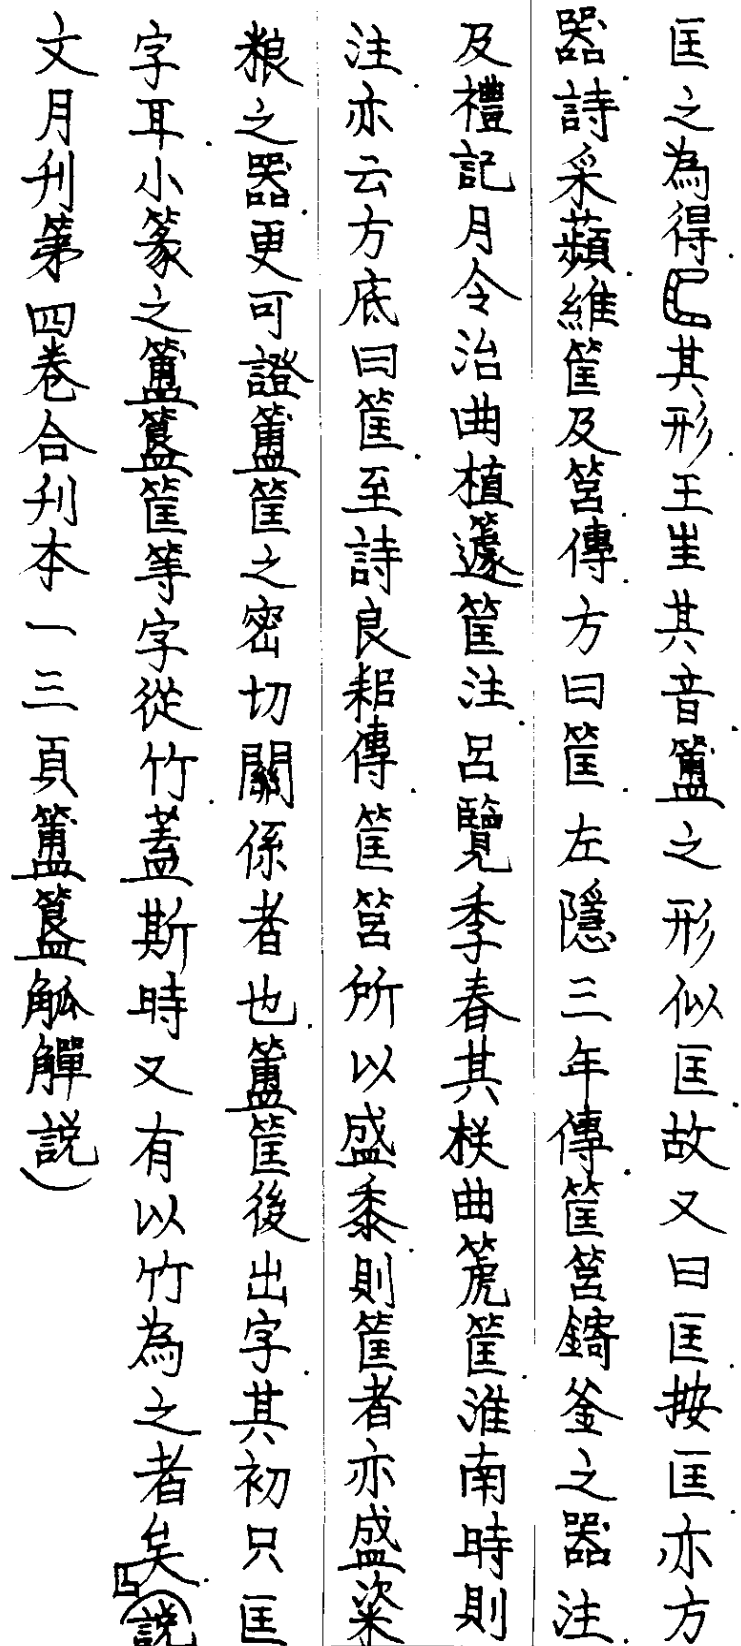 匡之為得匚其形𡉚其音簠之形似匡故又曰匡按匡亦方
器詩采蘋維筐及筥傳方曰筐左隱三年傳筐筥錡釜之器注
及禮記月令治曲植籧筐注呂覽季春其栚曲筐淮南時則
注亦云方底曰筐至詩良耜傳筐筥所以盛黍則筐者亦盛粢
粮之器更可證簠筐之密切關係者也簠筐後出字其初只匡
字耳小篆之簠簋筐等字從竹蓋斯時又有以竹為之者矣」（說
文月刊第四卷合刊本一三頁簠簋觚觶説）